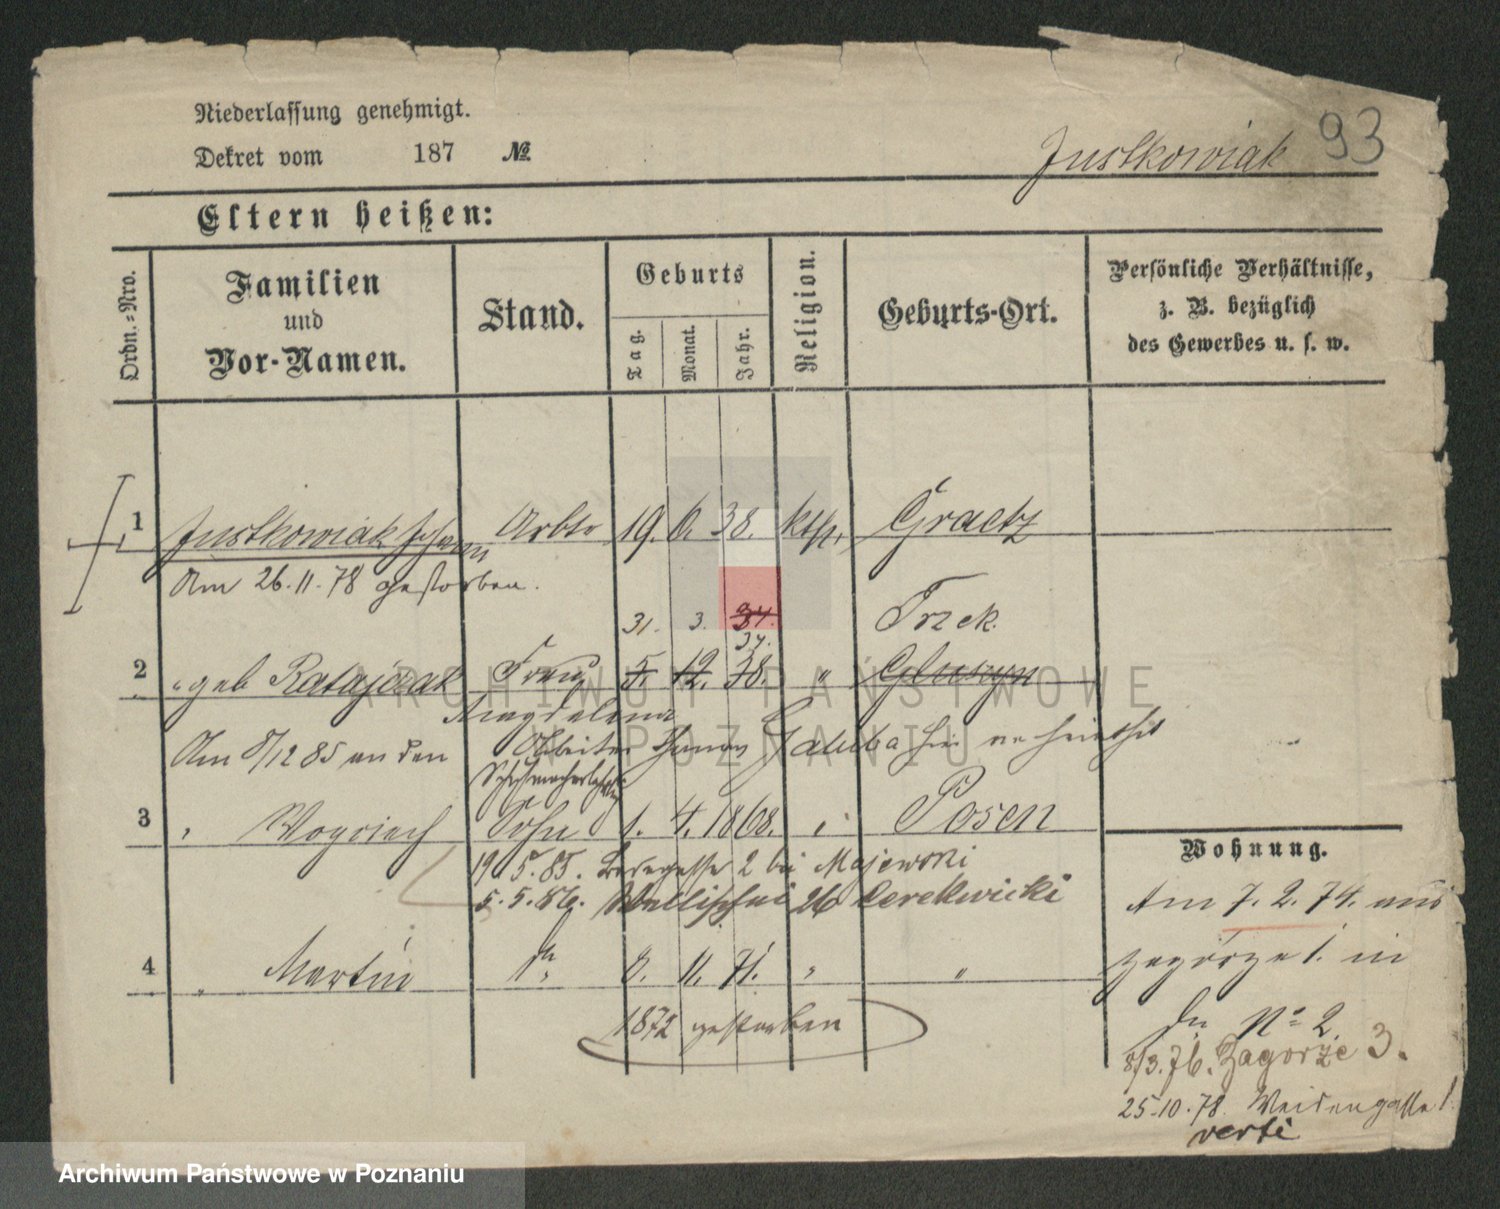 Niederlassung genehmigt.
Dekret vom 187 №
Justkowiak 93
Eltern heißen:
Ordn.-Nro.
Familien
und
Vor-Namen.
Stand.
Geburts
Tag.
Monat.
Jahr.
Religion.
Geburts-Ort.
Persönliche Verhältnisse,
z. B. bezüglich
des Gewerbes u. s. w.
1 Justkowiak Johann Arbtr 19. 6. 38. kth. Graetz
Am 26.11.78 gestorben.
31. 3. 34. Trzek.
37.
2 " geb Ratajczak Frau 5. 12. 38. " Gluszyn
Magdalena
Am 8/12 85 an den Arbeiter Galuba hier verheirathet
3 " Woyciech Sohn 1. 4. 1868. " Posen
19 5. 85. 2 bei Majewski
5. 5. 86. Wallischei 26 Cerekwicki
4 " Martin do 8. 11. 71. " "
1872 gestorben
Wohnung.
Am 7. 2. 74. aus
Zagórze 1. in
do No 2.
8/3. 76. Zagorze 3.
25.10.78. Weidengasse 1.
verte
ARCHIWUM PAŃSTWOWE
W POZNANIU
Archiwum Państwowe w Poznaniu